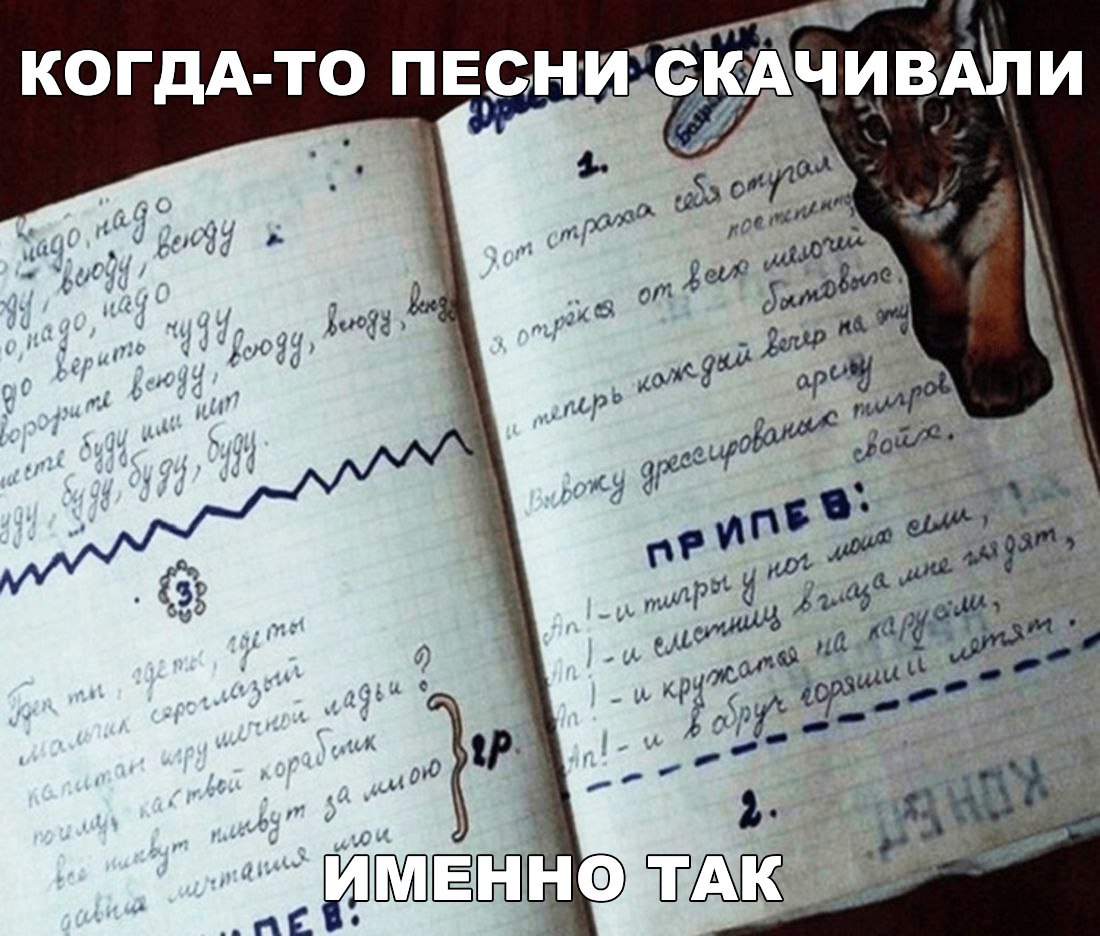 КОГДА-ТО ПЕСНИ СКАЧИВАЛИ
надо, надо
всюду, всюду
надо, надо
верить чуду
всюду, всюду, всюду, всюду
буду или нет
буду, буду, буду.
3
где ты, где ты
мальчик сероглазый
капитан игрушечной ладьи ?
как твой кораблик
все плывут плывут за мною
давние мечтания мои
2р.
1.
Я от страха себя отучал
постепенно,
я отрёкся от всех мелочей
бытовых.
и теперь каждый вечер на эту
арену
Вывожу дрессированых тигров
своих.
ПРИПЕВ:
Ап! - и тигры у ног моих сели,
Ап! - и с лестниц в глаза мне глядят,
Ап! - и кружатся на карусели,
Ап! - и в обруч горящий летят.
2.
КОНЕЦ
ИМЕННО ТАК